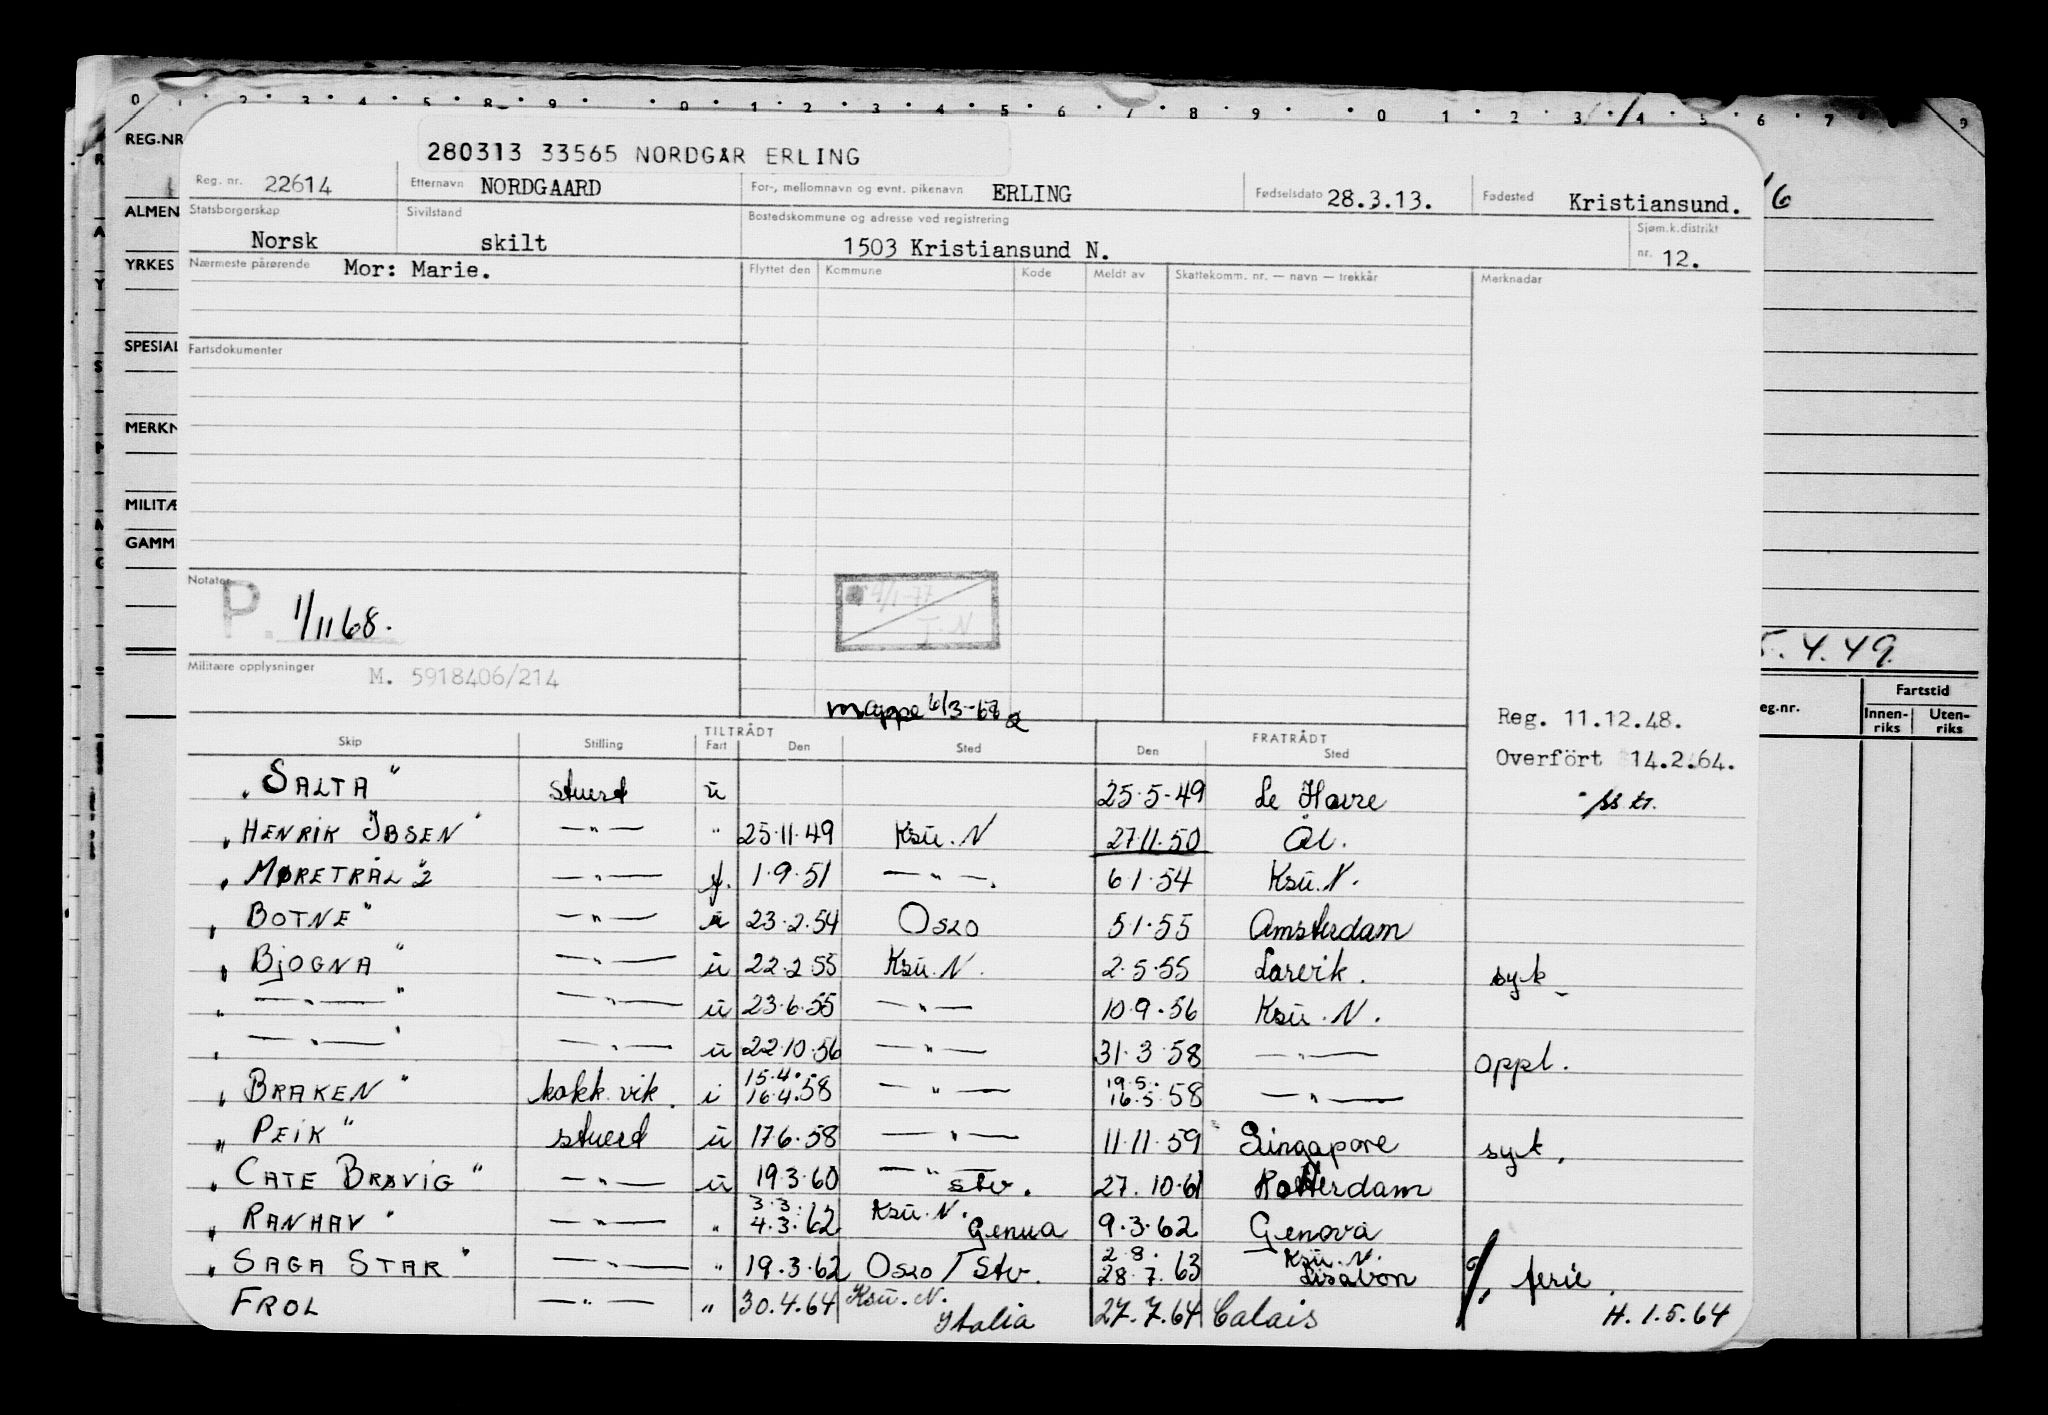 0 1 2 3 4 5 8 9 0 1 2 3 4 5 6 7 8 9 0 1 2 3 4 5 6 7 9
REG.NR
280313 33565 NORDGAR ERLING
Reg. nr. 22614 Etternavn NORDGAARD For-, mellomnavn og evnt. pikenavn ERLING Fødselsdato 28.3.13. Fødested Kristiansund. 6
ALMEN Statsborgerskap Norsk Sivilstand skilt Bostedskommune og adresse ved registrering 1503 Kristiansund N. Sjøm.k.distrikt nr. 12.
YRKES Nærmeste pårørende Mor: Marie. Flyttet den Kommune Kode Meldt av Skattekomm. nr. — navn — trekkår Merknadar
SPESIAL Fartsdokumenter
MERKN
MILITÆ
GAMM
Notater P. 1/11 68.
4/1-77
I.N
5.4.49
Militære opplysninger M. 5918406/214
mappe 6/3-68
Reg. 11.12.48.
Overfört 14.2.64.
eg.nr. Fartstid Innen-riks Uten-riks
TILTRÅDT FRATRÅDT
Skip Stilling Fart Den Sted Den Sted
"SALTA" stuerd u 25-5-49 Le Havre
"HENRIK IBSEN" —"— " 25.11.49 Ksu. N 27.11.50 Ål.
"MØRETRÅL 2" —"— f. 1.9.51 —"—. 6.1.54 Ksu. N.
"BOTNE" —"— u 23.2.54 OSLO 5.1.55 Amsterdam
"BJOGNA" —"— u 22.2.55 Ksu. N. 2.5.55 Larvik. syk
"—"—" —"— u 23.6.55 —"— 10.9.56 Ksu. N.
"—"—" —"— u 22.10.56 —"— 31.3.58 —"— oppl.
"BRAKEN" kokk vik. i 15.4. 16.4.58 —"— 19.5. 16.5.58 —"—
"PEIK" stuerd u 17.6.58 —"— 11.11.59 Singapore syk.
"CATE BRØVIG" —"— u 19.3.60 —"— stv. 27.10.61 Rotterdam
"RANHAV" —"— " 3.3. 4.3.62 Ksu. N. Genua 9.3.62 Genova
"SAGA STAR" —"— " 19.3.62 OSLO / Stv. 2.8. 28.7.63 Ksu. N. Lisabon ferie.
FROL —"— " 30.4.64 Ksu. N. Italia 27.7.64 Calais H. 1.5.64